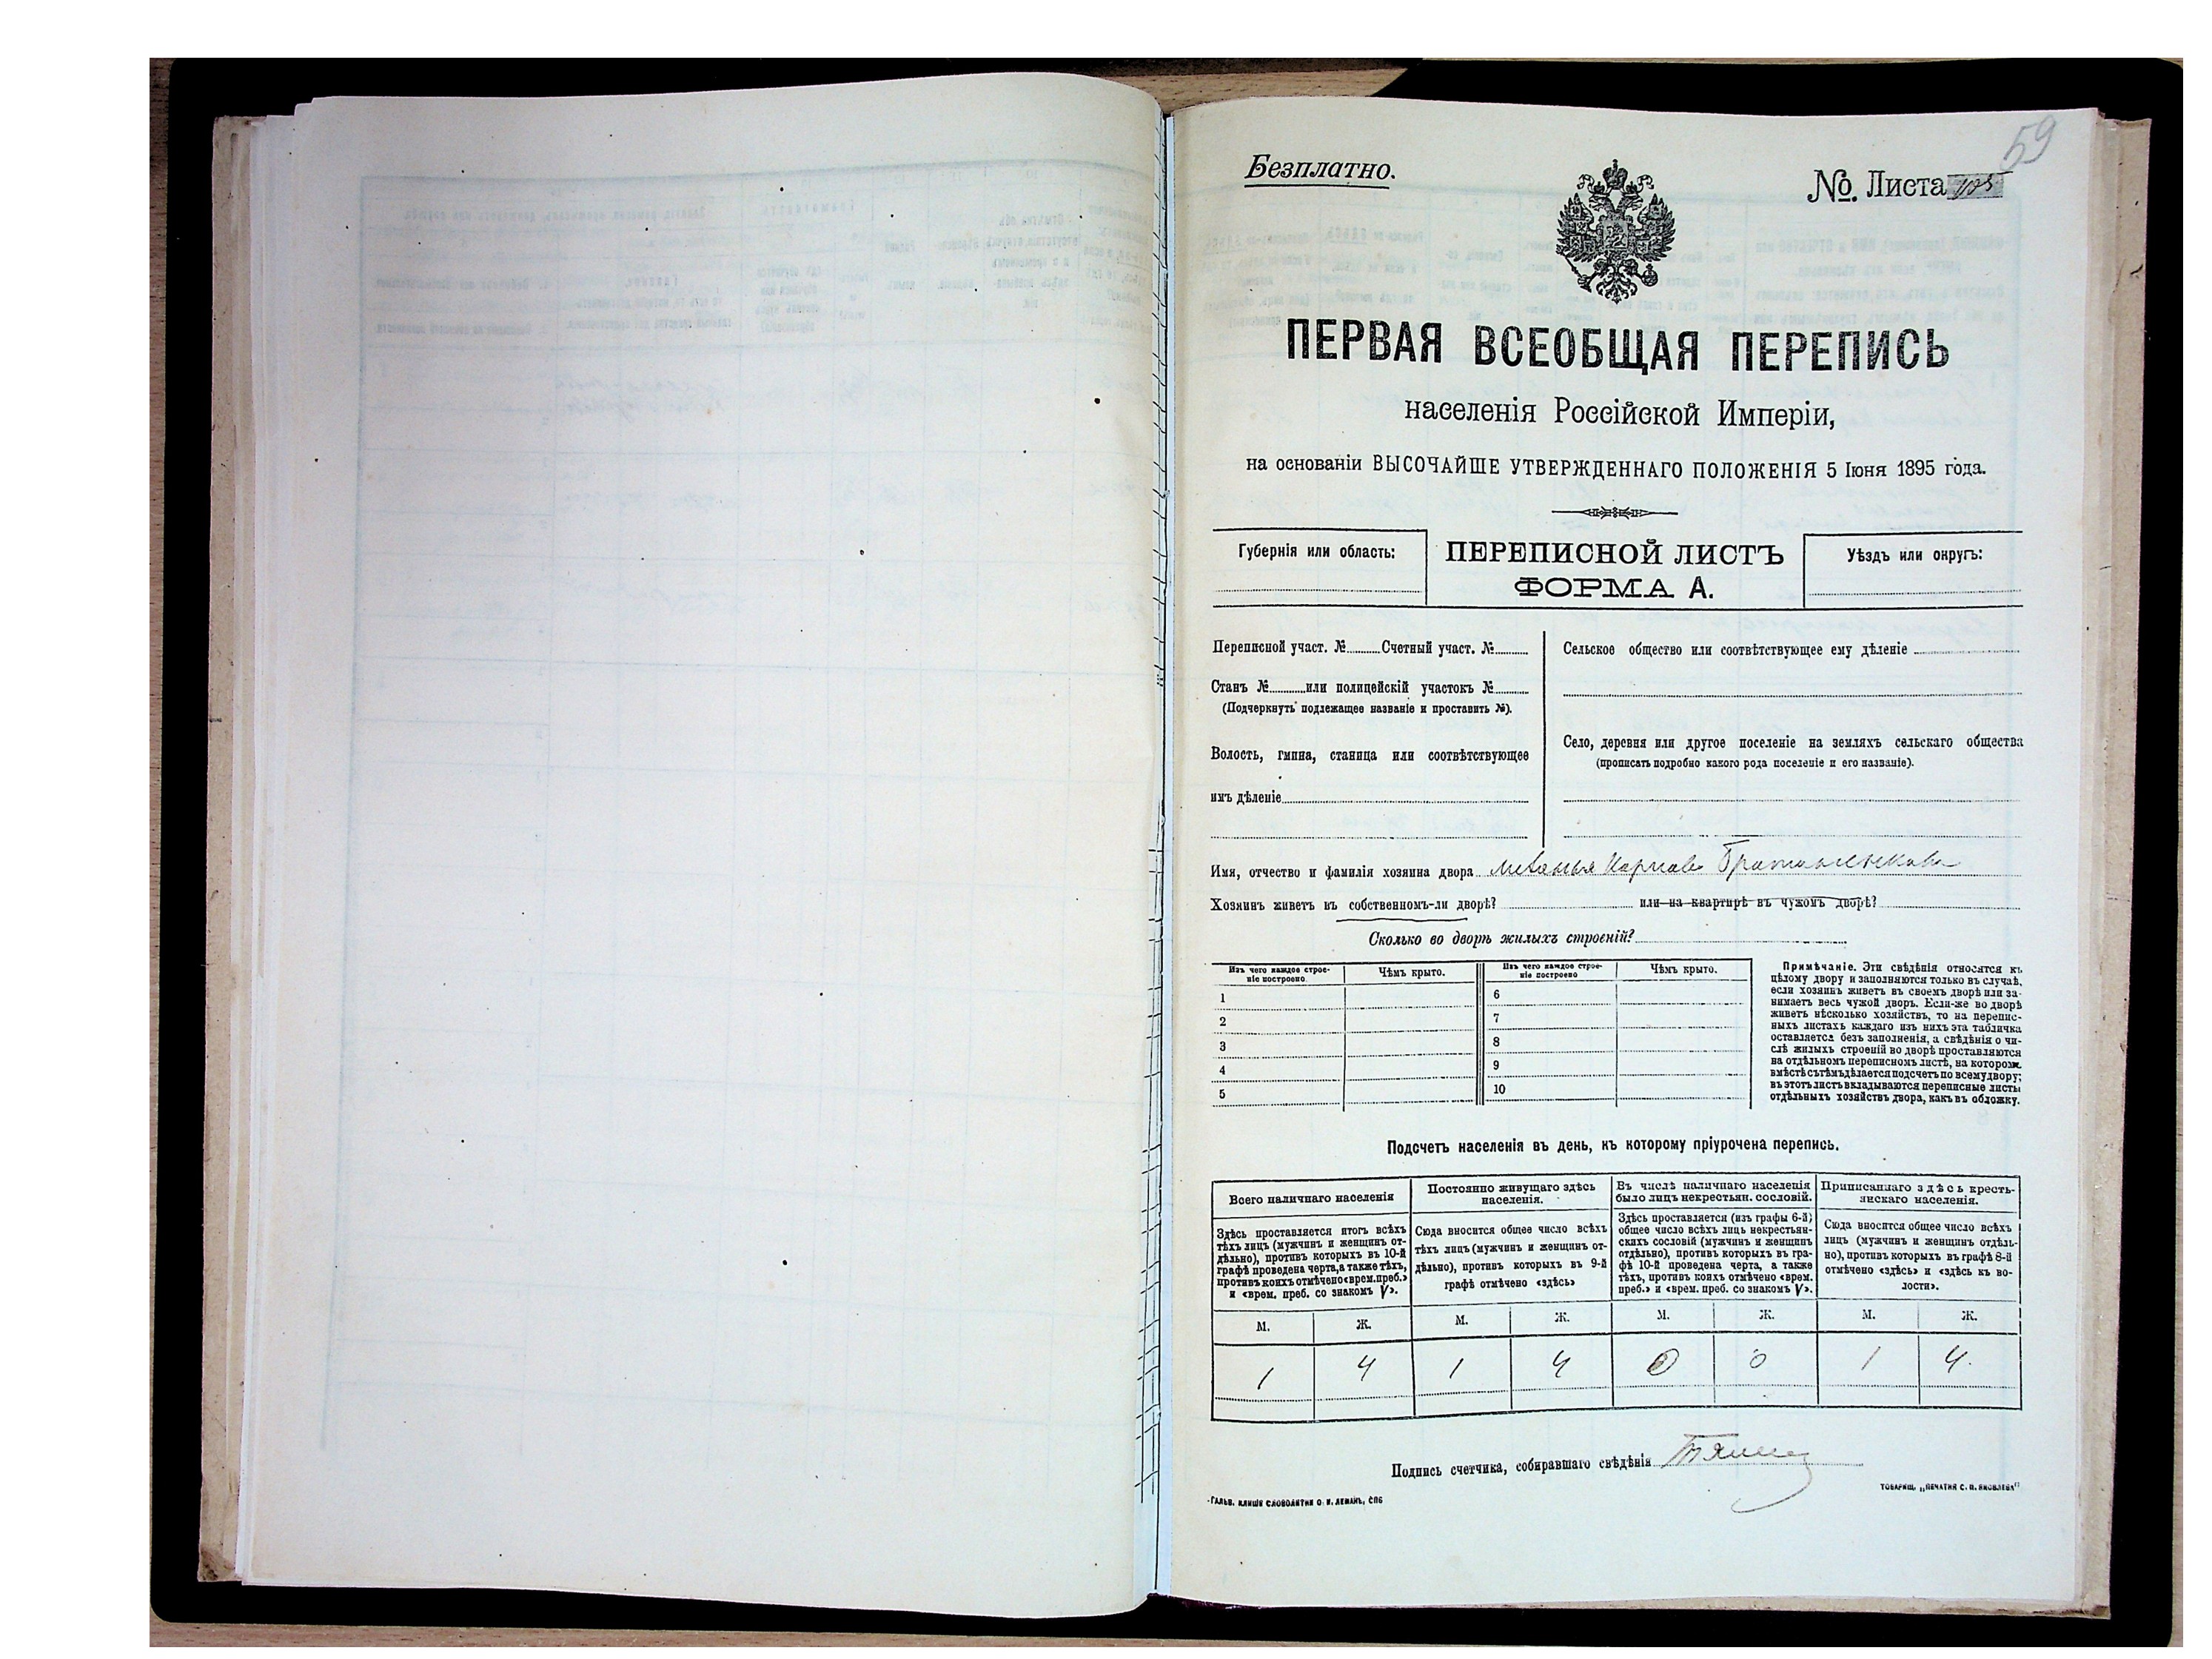 59
Безплатно.
№. Листа 105
ПЕРВАЯ ВСЕОБЩАЯ ПЕРЕПИСЬ
населенія Россійской Имперіи,
на основаніи ВЫСОЧАЙШЕ УТВЕРЖДЕННАГО ПОЛОЖЕНІЯ 5 Іюня 1895 года.
Губернія или область:
ПЕРЕПИСНОЙ ЛИСТЪ
ФОРМА А.
Уѣздъ или округъ:
Переписной участ. № Счетный участ. №
Станъ № или полицейскій участокъ №
(Подчеркнуть подлежащее названіе и проставить №).
Волость, гмина, станица или соотвѣтствующее
имъ дѣленіе
Сельское общество или соотвѣтствующее ему дѣленіе
Село, деревня или другое поселеніе на земляхъ сельскаго общества
(прописать подробно какого рода поселеніе и его названіе).
Имя, отчество и фамилія хозяина двора
Хозяинъ живетъ въ собственномъ-ли дворѣ? или на квартирѣ въ чужомъ дворѣ?
Сколько во дворѣ жилыхъ строеній?
Изъ чего каждое строе-
ніе построено
Чѣмъ крыто.
1
2
3
4
5
Изъ чего каждое строе-
ніе построено
Чѣмъ крыто.
6
7
8
9
10
Примѣчаніе. Эти свѣдѣнія относятся къ
цѣлому двору и заполняются только въ случаѣ,
если хозяинъ живетъ въ своемъ дворѣ или за-
нимаетъ весь чужой дворъ. Если-же во дворѣ
живетъ нѣсколько хозяйствъ, то на перепис-
ныхъ листахъ каждаго изъ нихъ эта табличка
оставляется безъ заполненія, а свѣдѣнія о чи-
слѣ жилыхъ строеній во дворѣ проставляются
на отдѣльномъ переписномъ листѣ, на которомъ
вмѣстѣ съ тѣмъ дѣлается подсчетъ по всему двору;
въ этотъ листъ вкладываются переписные листы
отдѣльныхъ хозяйствъ двора, какъ въ обложку.
Подсчетъ населенія въ день, къ которому пріурочена перепись.
Всего наличнаго населенія
Здѣсь проставляется итогъ всѣхъ
тѣхъ лицъ (мужчинъ и женщинъ от-
дѣльно), противъ которыхъ въ 10-й
графѣ проведена черта, а также тѣхъ,
противъ коихъ отмѣчено «врем. преб.»
и «врем. преб. со знакомъ V».
Постоянно живущаго здѣсь
населенія.
Сюда вносится общее число всѣхъ
тѣхъ лицъ (мужчинъ и женщинъ от-
дѣльно), противъ которыхъ въ 9-й
графѣ отмѣчено «здѣсь»
Въ числѣ наличнаго населенія
было лицъ некрестьян. сословій.
Здѣсь проставляется (изъ графы 6-й)
общее число всѣхъ лицъ некрестьян-
скихъ сословій (мужчинъ и женщинъ
отдѣльно), противъ которыхъ въ гра-
фѣ 10-й проведена черта, а также
тѣхъ, противъ коихъ отмѣчено «врем.
преб.» и «врем. преб. со знакомъ V».
Приписаннаго здѣсь кресть-
янскаго населенія.
Сюда вносится общее число всѣхъ
лицъ (мужчинъ и женщинъ отдѣль-
но), противъ которыхъ въ графѣ 8-й
отмѣчено «здѣсь» и «здѣсь къ во-
лости».
М. Ж. М. Ж. М. Ж. М. Ж.
1 4 1 4 0 0 1 4.
Подпись счетчика, собиравшаго свѣдѣнія
ГАЛЬВ. КЛИШЕ СЛОВОЛИТНИ О. И. ЛЕМАНЪ, СПБ
ТОВАРИЩ. „ПЕЧАТНЯ С. П. ЯКОВЛЕВА"